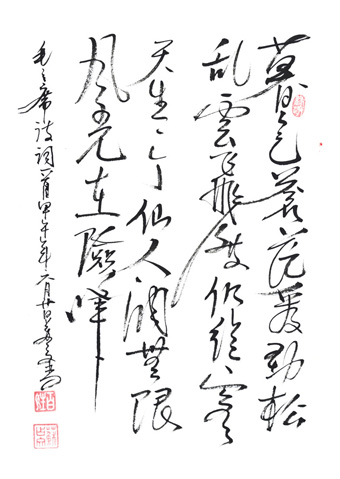 暮色蒼茫看勁松
乱雲飛渡仍從容
天生一个仙人洞無限
风光在險峰
毛主席詩詞一首甲午年二月